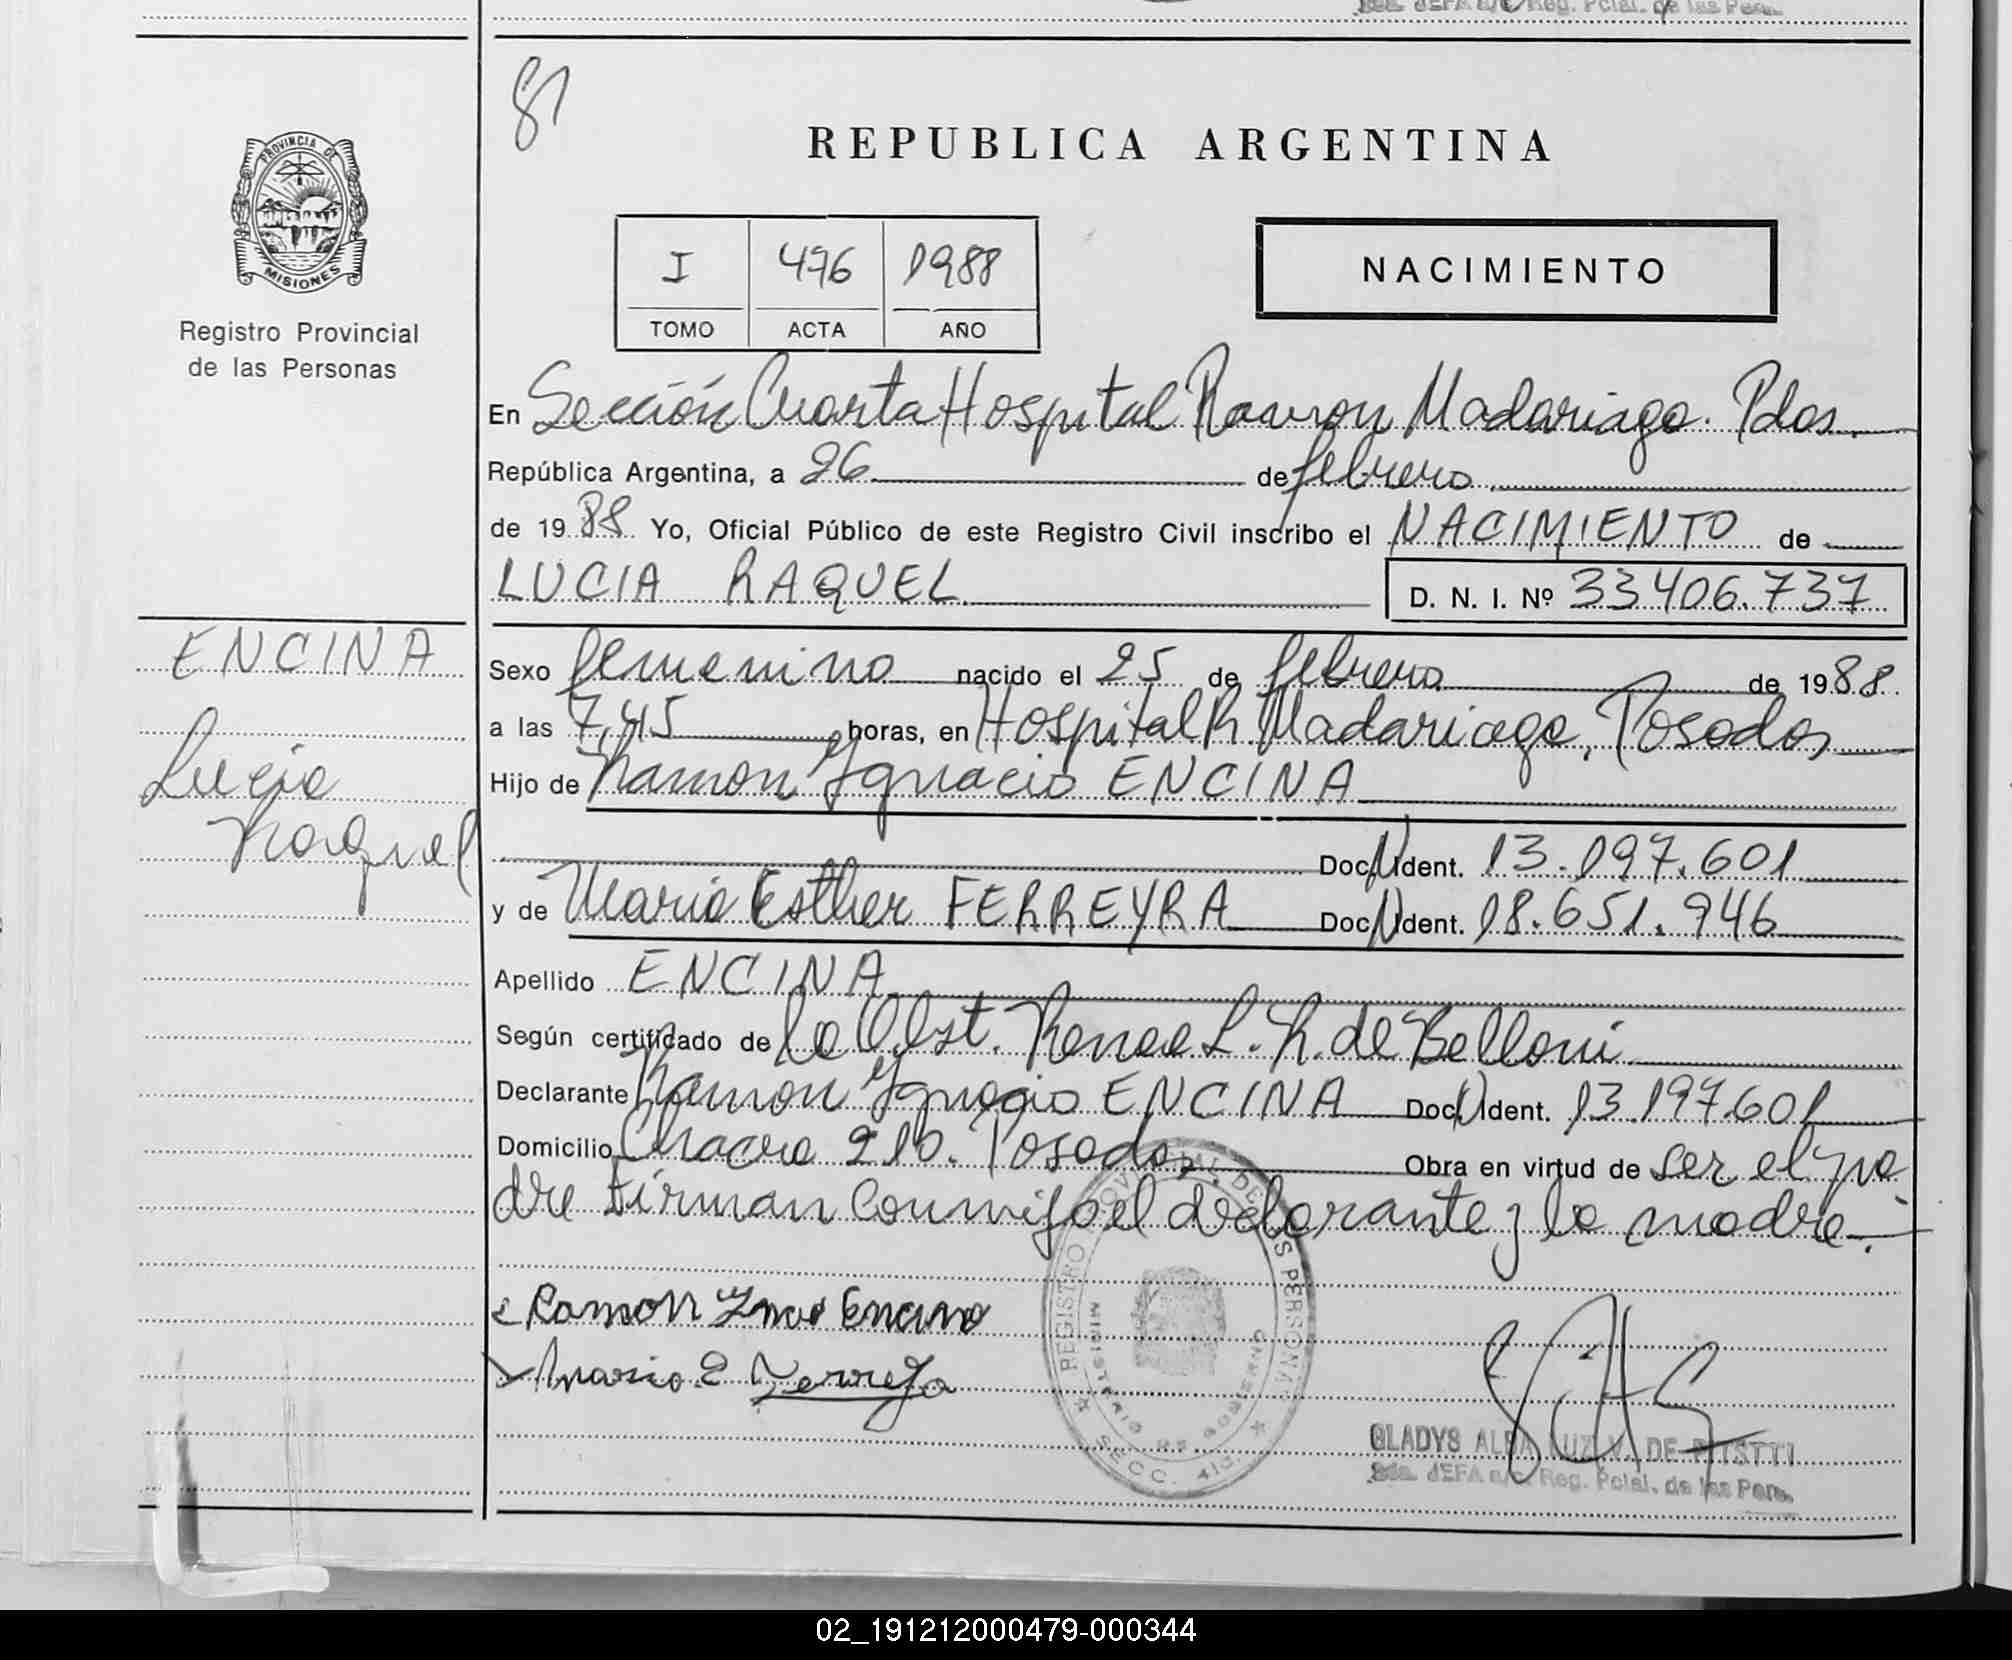 Sda. JEFA a/c. Reg. Pcial. de las Pers.
81
REPUBLICA ARGENTINA
PROVINCIA DE
MISIONES
Registro Provincial
de las Personas
I 476 1988
TOMO ACTA AÑO
NACIMIENTO
En Sección Cuarta Hospital Ramon Madariaga. Pdas.
República Argentina, a 26 de febrero
de 1988 Yo, Oficial Público de este Registro Civil inscribo el NACIMIENTO de
LUCIA RAQUEL D. N. I. Nº 33406.737
ENCINA
Lucia
Raquel
Sexo femenino nacido el 25 de febrero de 1988.
a las 7,45 horas, en Hospital R. Madariaga, Posadas
Hijo de Ramon Ygnacio ENCINA
Doc. Ident. 13.197.601
y de Maria Esther FERREYRA Doc. Ident. 18.651.946
Apellido ENCINA
Según certificado de la Obst. Renee L. R. de Belloni
Declarante Ramon Ygnacio ENCINA Doc. Ident. 13.197.601
Domicilio Chacra 210. Posadas Obra en virtud de ser el pa
dre Firman conmigo el declarante y la madre.
Ramon Encina
Maria E Ferreyra
REGISTRO PROVINCIAL DE LAS PERSONAS
MINISTERIO DE GOBIERNO
SECC. 4ta.
GLADYS ALBA LUZ V. DE
Sda. JEFA a/c. Reg. Pcial. de las Pers.
02_191212000479-000344